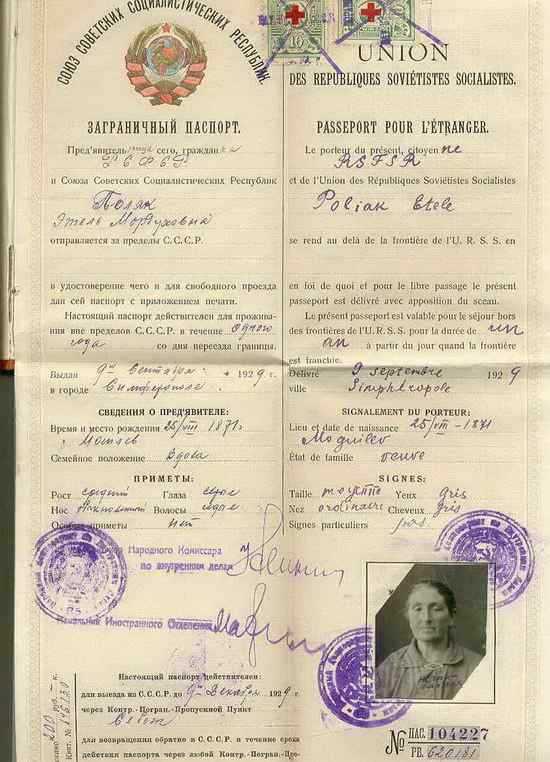 СОЮЗ СОВЕТСКИХ СОЦИАЛИСТИЧЕСКИХ РЕСПУБЛИК.
ЗАГРАНИЧНЫЙ ПАСПОРТ.
Пред'явитель сего, граждан ка
РСФСР
и Союза Советских Социалистических Республик
Поляк
Этель Мордуховна
отправляется за пределы С.С.С.Р.
в удостоверение чего и для свободного проезда
дан сей паспорт с приложением печати.
Настоящий паспорт действителен для прожива-
ния вне пределов С.С.С.Р. в течение одного
года со дня переезда границы.
Выдан 9го Сентября 1929 г.
в городе Симферополе.
СВЕДЕНИЯ О ПРЕД'ЯВИТЕЛЕ:
Время и место рождения 25/VIII 1871г.
Семейное положение Вдова
ПРИМЕТЫ:
Рост средний Глаза серые
Нос Волосы
Особые приметы нет
Народного Комиссара
по внутренним делам
Начальник Иностранного Отделения
Настоящий паспорт действителен:
для выезда из С.С.С.Р. до 9го Декабря 1929 г.
через Контр.-Погран.-Пропускной Пункт
для возвращения обратно в С.С.С.Р. в течение срока
действия паспорта через любой Контр.-Погран.-Про-
UNION
DES REPUBLIQUES SOVIÉTISTES SOCIALISTES.
PASSEPORT POUR L'ÉTRANGER.
Le porteur du présent, citoyen ne
RSFSR
et de l'Union des Républiques Soviétistes Socialistes
Poliak Etele
se rend au delà de la frontière de l'U. R. S. S. en
en foi de quoi et pour le libre passage le présent
passeport est délivré avec apposition du sceau.
Le présent passeport est valable pour le séjour hors
des frontières de l'U. R. S. S. pour la durée de un
an à partir du jour quand la frontière
est franchie.
Délivré 9 septembre 1929
ville Simphéropole
SIGNALEMENT DU PORTEUR:
Lieu et date de naissance 25/VIII - 1871
Moguilev
État de famille veuve
SIGNES:
Taille moyenne Yeux gris
Nez ordinaire Cheveux gris
Signes particuliers
№ ПАС. 104227
РЕ. 620181